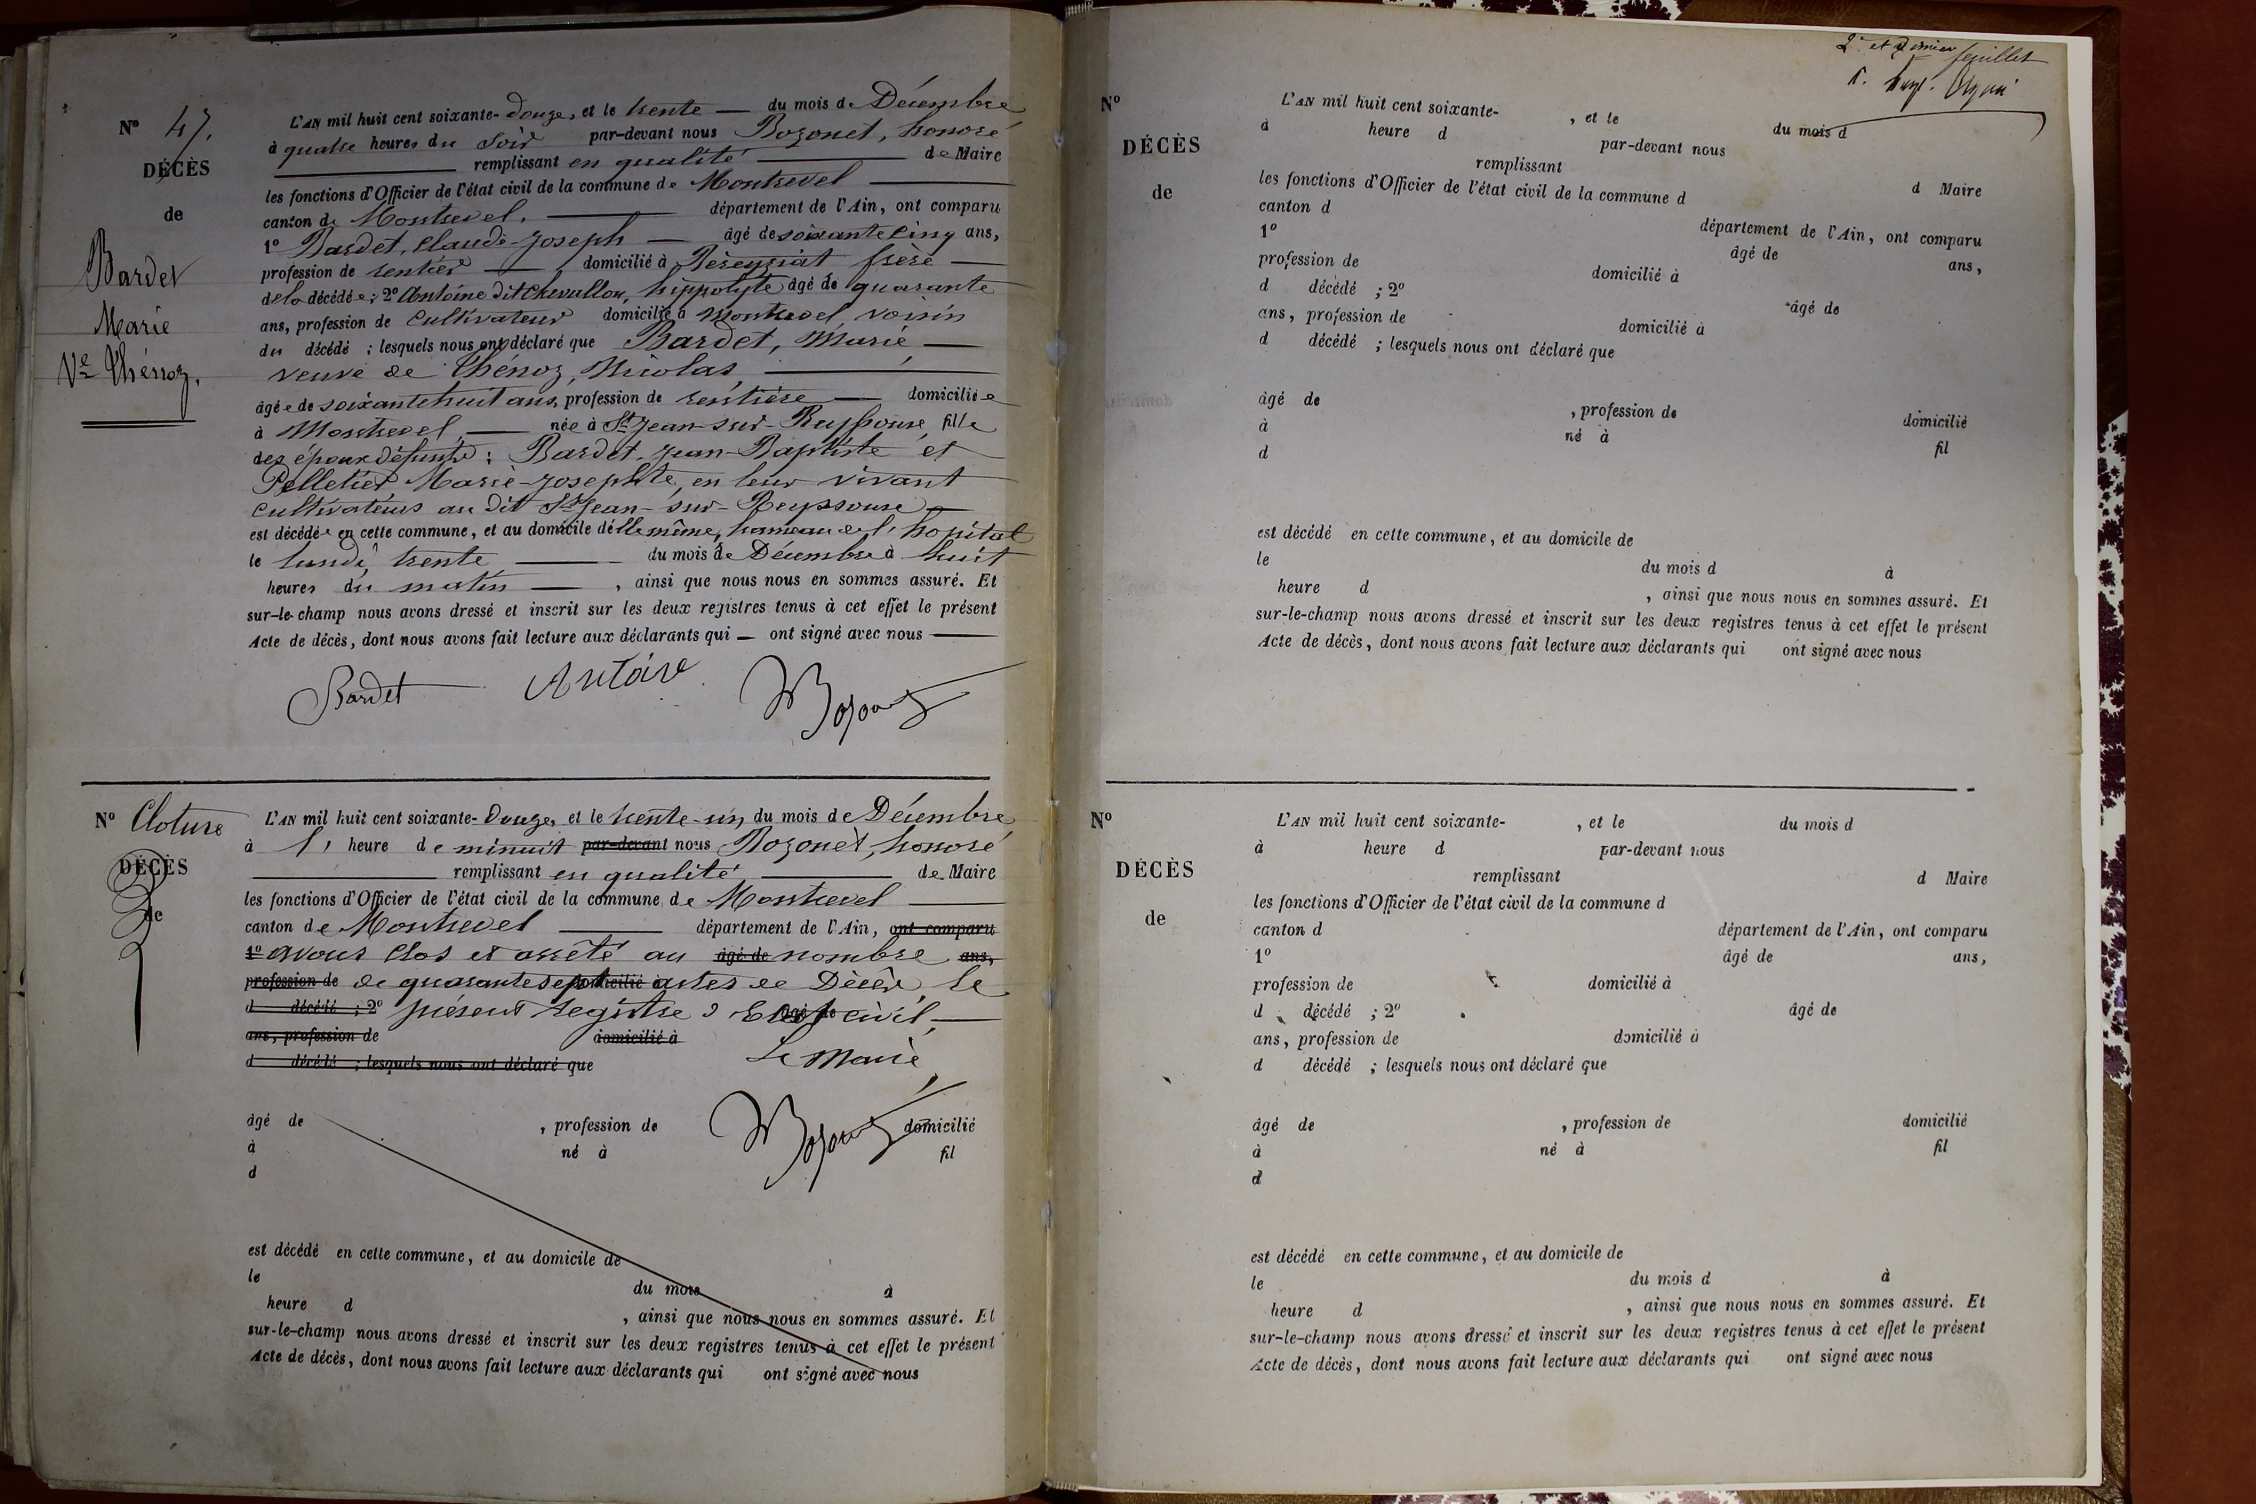 N° 47.
DÉCÈS
de
Bardet
Marie
Ve Thénoz.
L'AN mil huit cent soixante-douze, et le trente du mois de Décembre
à quatre heures du Soir par-devant nous Bozonet, honoré
remplissant en qualité de Maire
les fonctions d'Officier de l'état civil de la commune de Montrevel
canton de Montrevel. département de l'Ain, ont comparu
1° Bardet, Claude-Joseph âgé de soixante cinq ans,
profession de rentier domicilié à Béreyziat frère
de la décédée ; 2° Antoine dit Chevallon, hippolyte âgé de quarante
ans, profession de cultivateur domicilié à Montrevel, voisin
du décédé ; lesquels nous ont déclaré que Bardet, Marie
veuve de Thénoz, Nicolas,
âgée de soixante huit ans, profession de rentière domiciliée
à Montrevel, née à St Jean-sur-Reyssouse, fille
des époux défunts : Bardet, Jean-Baptiste et
Pelletier Marie-Josephte, en leur vivant
cultivateurs au dit St Jean-sur-Reyssouse
est décédée en cette commune, et au domicile d'elle même, hameau de l'hopital
le lundi trente du mois de Décembre à huit
heures du matin , ainsi que nous nous en sommes assuré. Et
sur-le-champ nous avons dressé et inscrit sur les deux registres tenus à cet effet le présent
Acte de décès, dont nous avons fait lecture aux déclarants qui ont signé avec nous
Bardet Antoine Bozonet
N° Cloture
DÉCÈS
de
L'AN mil huit cent soixante-Douze, et le trente-un du mois de Décembre
à l' heure de minuit par-devant nous Bozonet, honoré
remplissant en qualité de Maire
les fonctions d'Officier de l'état civil de la commune de Montrevel
canton de Montrevel département de l'Ain, ont comparu
1° avons clos et arrêté au âgé de nombre ans,
profession de de quarante sept domicilié à actes de Décès le
d décédé ; 2° présent registre d'Etat âgé de civil,
ans, profession de domicilié à
d décédé ; lesquels nous ont déclaré que Le Maire
Bozonet
âgé de , profession de domicilié
à né à fil
d
est décédé en cette commune, et au domicile de
le du mois à
heure d , ainsi que nous nous en sommes assuré. Et
sur-le-champ nous avons dressé et inscrit sur les deux registres tenus à cet effet le présent
Acte de décès, dont nous avons fait lecture aux déclarants qui ont signé avec nous
2e et dernier feuillet
N°
DÉCÈS
de
L'AN mil huit cent soixante- , et le du mois d
à heure d par-devant nous
remplissant d Maire
les fonctions d'Officier de l'état civil de la commune d
canton d département de l'Ain, ont comparu
1° âgé de ans,
profession de domicilié à
d décédé ; 2° âgé de
ans, profession de domicilié à
d décédé ; lesquels nous ont déclaré que
âgé de , profession de domicilié
à né à fil
d
est décédé en cette commune, et au domicile de
le du mois d à
heure d , ainsi que nous nous en sommes assuré. Et
sur-le-champ nous avons dressé et inscrit sur les deux registres tenus à cet effet le présent
Acte de décès, dont nous avons fait lecture aux déclarants qui ont signé avec nous
N°
DÉCÈS
de
L'AN mil huit cent soixante- , et le du mois d
à heure d par-devant nous
remplissant d Maire
les fonctions d'Officier de l'état civil de la commune d
canton d département de l'Ain, ont comparu
1° âgé de ans,
profession de domicilié à
d décédé ; 2° âgé de
ans, profession de domicilié à
d décédé ; lesquels nous ont déclaré que
âgé de , profession de domicilié
à né à fil
d
est décédé en cette commune, et au domicile de
le du mois d à
heure d , ainsi que nous nous en sommes assuré. Et
sur-le-champ nous avons dressé et inscrit sur les deux registres tenus à cet effet le présent
Acte de décès, dont nous avons fait lecture aux déclarants qui ont signé avec nous